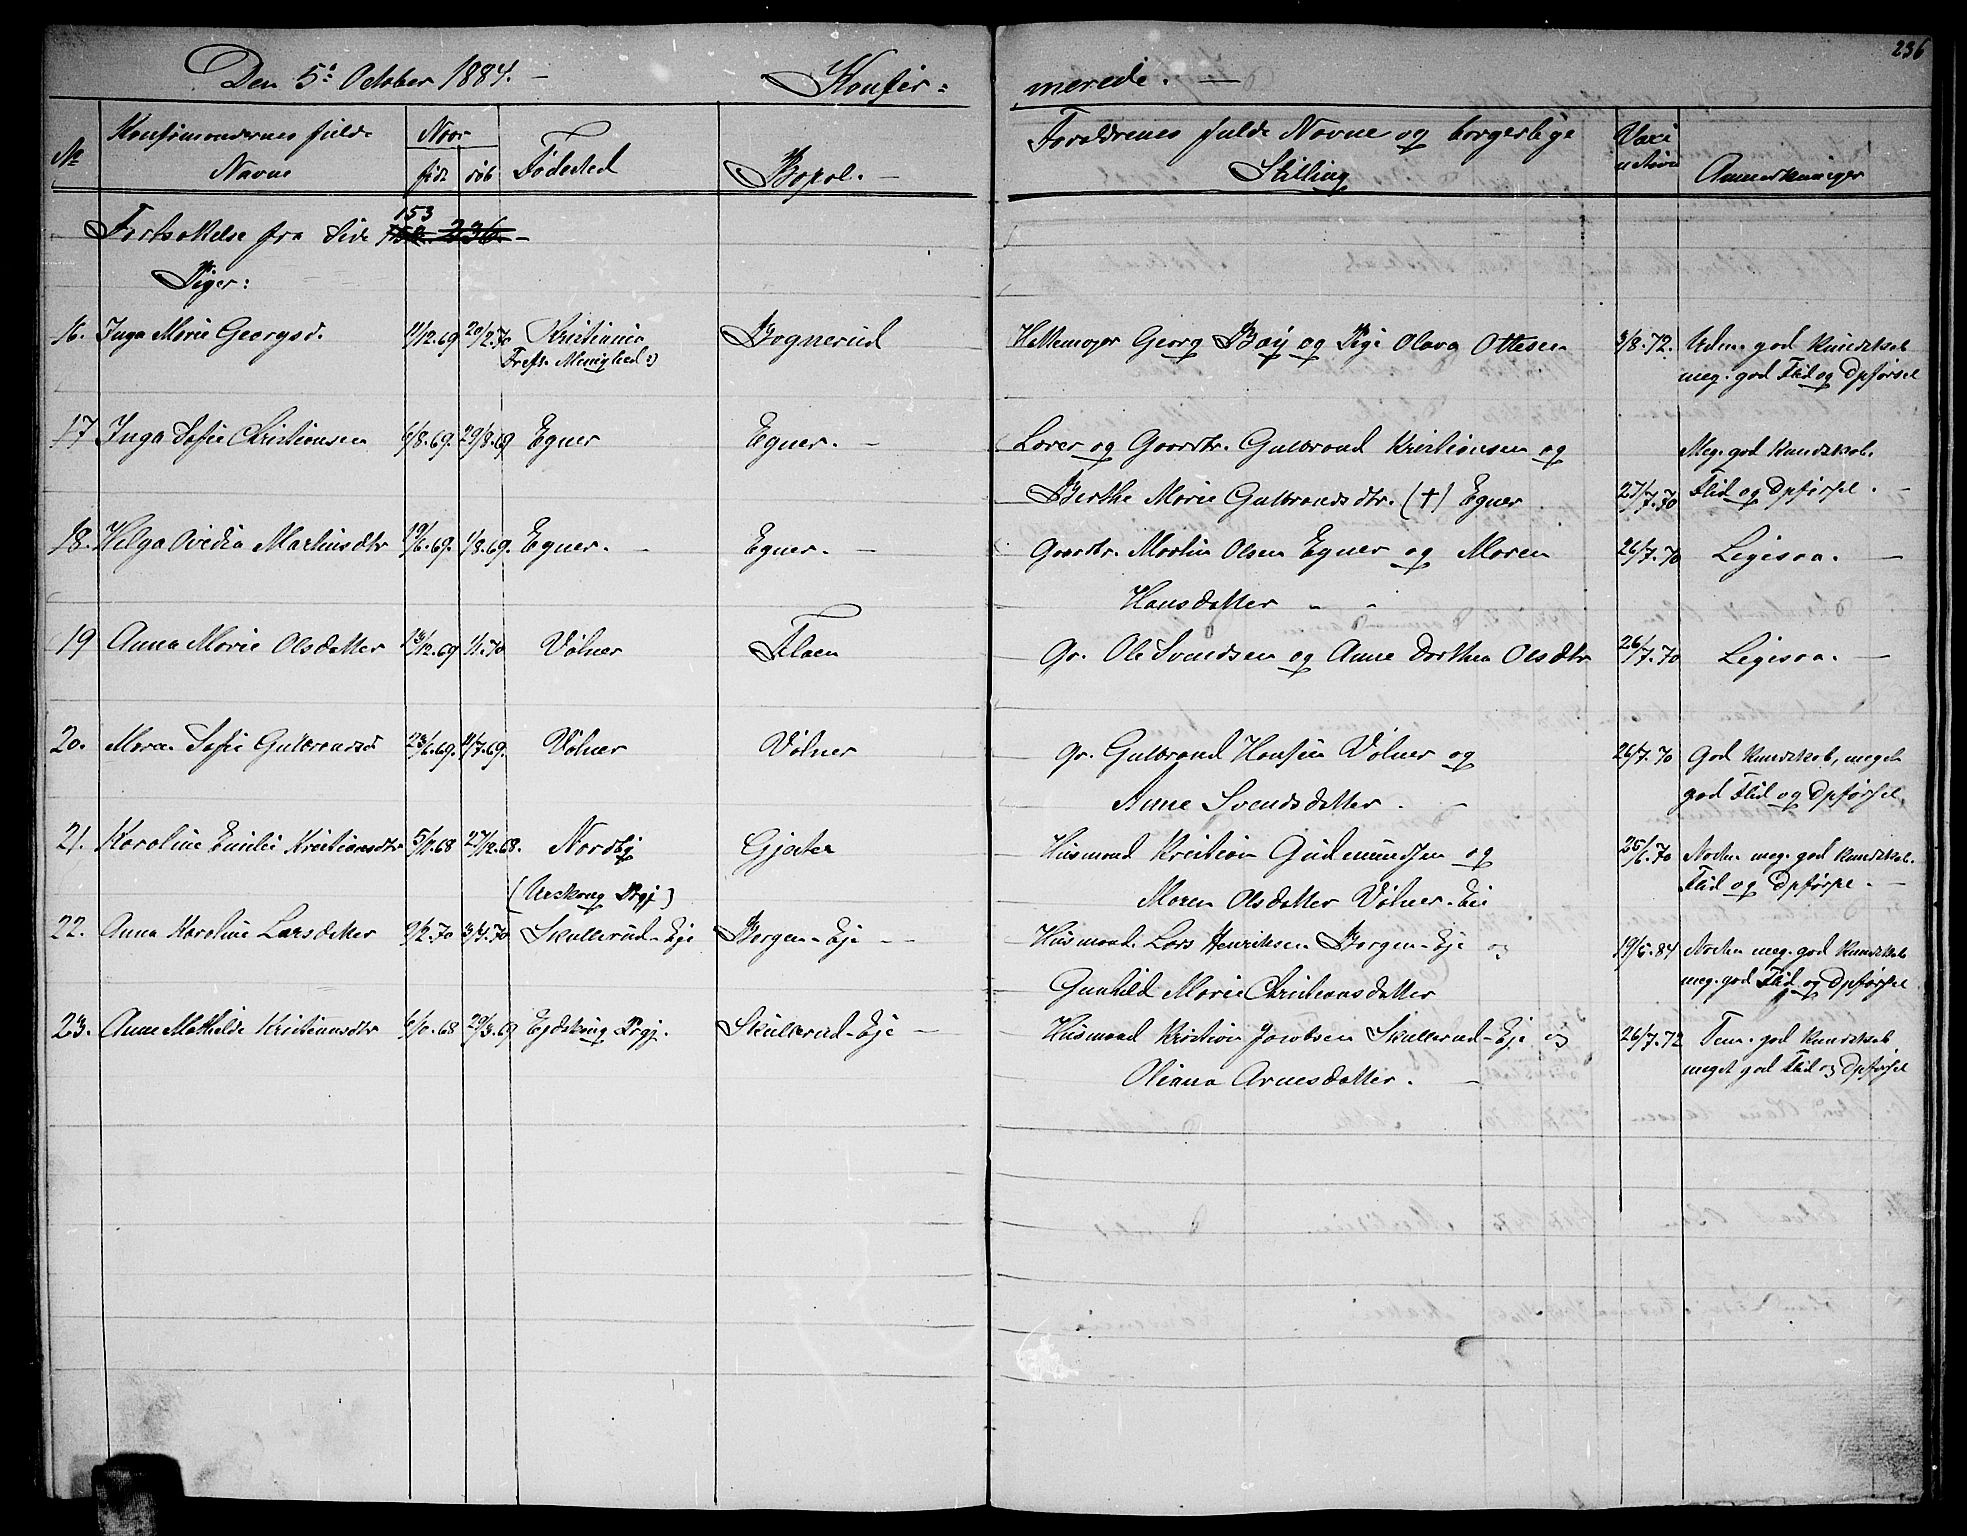 236
Den 5. October 1884. – Konfir=
merede. –
No Konfirmandernes fulde Navne Naar født døb Fødested Bopæl. –
Forældrenes fulde Navne og borgerlige Stilling Vaxi nation Anmærkninger
Fortsættelse fra Side 153 –
Piger:
16. Inga Marie Georgsd. 11/12.69 20/2.70 Kristiania Bognerud Georg og Pige Olava Ottesen 3/8.72. Udm. god Kundskab
Menighed:) meg. god Flid og Opførsel
17 Inga Sofie Christiansen 6/8.69. 29/8.69 Egner Egner. – Lærer og Gaardbr. Gulbrand Kristiansen og Meg. god Kundskab.
Berthe Marie Gulbrandsdtr. (†) Egner 27/7.70 Flid og Opførsel. –
18. Helga Ovedia Martinusdtr 19/6.69. 1/8.69. Egner. – Egner. – Gaardbr. Martin Olsen Egner og Maren 26/7.70 Ligesaa. –
Hansdatter
19 Anna Marie Olsdatter 13/12.69 1/1.70 Vølner Flaen Gr. Ole Svendsen og Anne Dorthea Olsdtr 26/7.70 Ligesaa. –
20. Maren Sofie Gulbrandsd 23/6.69. 11/7.69. Vølner Vølner Gr. Gulbrand Hansen Vølner og 26/7.70 God Kundskab, meget
Anne Svendsdatter. – god Flid og Opførsel.
21. Karoline Emilie Kristiansdtr 5/11.68 27/12.68. Nordby Gjæter Husmand Kristian Gudmundsen og 25/6.70 Noken meg. god Kundskab.
(Urskoug Prgj) Maren Olsdatter Vølner-Eie Flid og Opførsel. –
22. Anna Karoline Larsdatter 9/2.70 3/4.70 Skullerud-Eje Borgen-Eje – Husmand Lars Henriksen Borgen-Eje og 19/5.84 Noken meg. god Kundskab
Gunhild Marie Christiansdatter meg. god Flid og Opførsel
23. Anne Mathilde Kristiansdtr 6/10.68 29/3.69 Ejdskoug Prgj. Skullerud-Eje – Husmand Kristian Jacobsen Skullerud-Eje og 26/7.72 Tem. god Kundskab
Oliana Arnesdatter. – meget god Flid og Opførsel